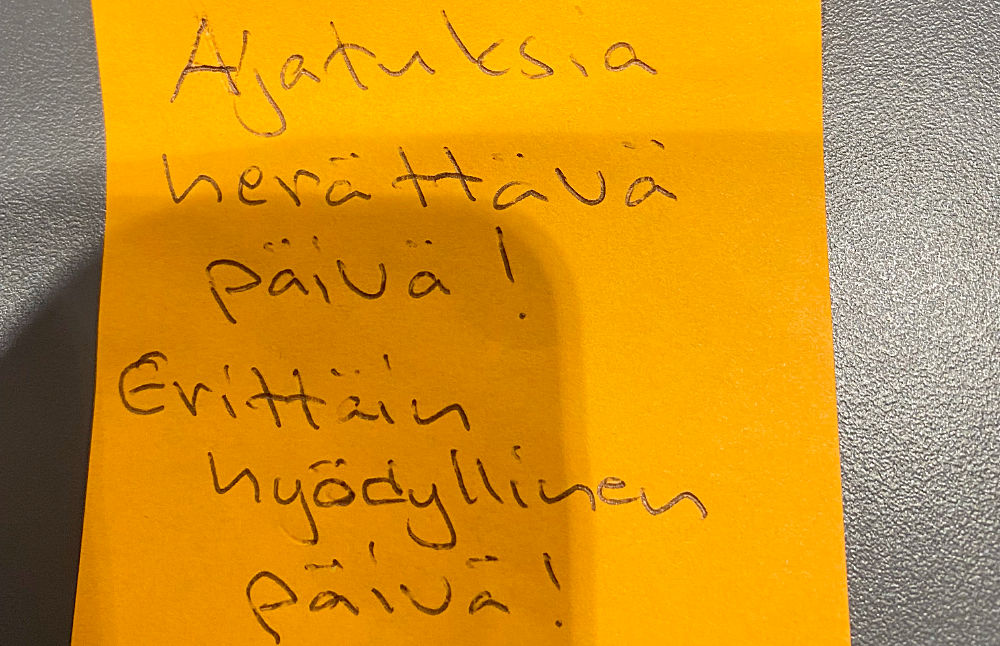 Ajatuksia
herättävä
päivä!
Erittäin
hyödyllinen
päivä!